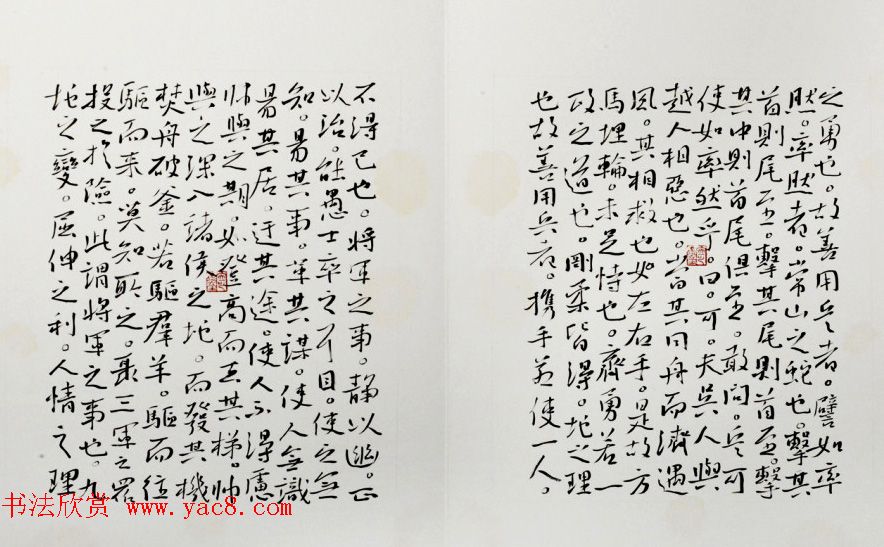 之勇也。故善用兵者。譬如率
然。率然者。常山之蛇也。擊其
首則尾至。擊其尾則首至。擊
其中則首尾俱至。敢問。兵可
使如率然乎。曰。可。夫吳人與
越人相惡也。當其同舟而濟遇
風。其相救也如左右手。是故方
馬埋輪。未足恃也。齊勇若一
政之道也。剛柔皆得。地之理
也故善用兵者。携手若使一人。
不得已也。將軍之事。靜以幽。正
以治。能愚士卒之耳目。使之無
知。易其事。革其謀。使人無識
易其居。迂其途。使人不得慮
帥與之期。如登高而去其梯。帥
與之深入諸侯之地。而發其機
焚舟破釜。若驅羣羊。驅而往
驅而來。莫知所之。聚三軍之眾
投之於險。此謂將軍之事也。九
地之變。屈伸之利。人情之理
书法欣赏 www.yac8.com